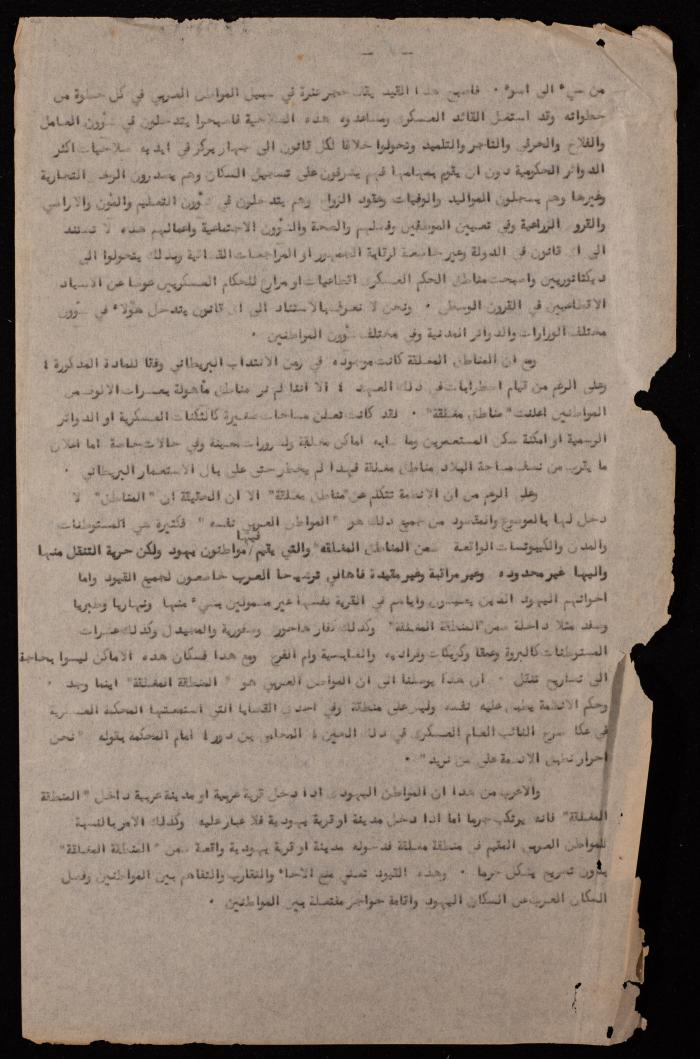 من سيء الى اسوء . فاصبح هذا القيد يقف حجر عثرة في سبيل المواطن العربي في كل خطوة من
خطواته وقد استغل القائد العسكري ومساعدوه هذه الصلاحية فاصبحوا يتدخلون في شؤون العامل
والفلاح والحرفي والتاجر والتلميذ وتحولوا خلافا لكل قانون الى جهاز يركز في ايديه صلاحيات اكثر
الدوائر الحكومية دون ان يقوم بمهامها فهم يشرفون على تسجيل السكان وهم يصدرون الرخص التجارية
وغيرها وهم يسجلون المواليد والوفيات وعقود الزواج وهم يتدخلون في شؤون التعليم والاراضي
والقروض الزراعية وفي تعيين الموظفين وفصلهم والصحة والشؤون الاجتماعية واعمالهم هذه لا تستند
الى اي قانون في الدولة وغير خاضعة لرقابة الجمهور او المراجعات القضائية وبذلك يتحولوا الى
ديكتاتوريين واصبحت مناطق الحكم العسكري اقطاعيات او مزارع للحكام العسكريين عوضا عن الاسياد
الاقطاعيين في القرون الوسطى . ونحن لا نعرف بالاستناد الى اي قانون يتدخل هؤلاء في شؤون
مختلف الوزارات والدوائر المدنية وفي مختلف شؤون المواطنين .
ومع ان المناطق المغلقة كانت موجودة في زمن الانتداب البريطاني وفقا للمادة المذكورة ٤
وعلى الرغم من قيام اضطرابات في ذلك العهد ٤ الا اننا لم نر مناطق مأهولة بعشرات الالوف من
المواطنين اعلنت "مناطق مغلقة" . لقد كانت تعلن مساحات صغيرة كالثكنات العسكرية او الدوائر
الرسمية او امكنة سكن المستعمرين وما شابه اماكن مغلقة ولضرورات معينة وفي حالات خاصة اما اعلان
ما يقرب من نصف مساحة البلاد مناطق مغلقة فهذا لم يخطر حتى على بال الاستعمار البريطاني .
وعلى الرغم من ان الانظمة تتكلم عن "مناطق مغلقة" الا ان الحقيقة ان "المناطق" لا
دخل لها بالموضوع والمقصود من جميع ذلك هو "المواطن العربي نفسه" فكثيرة هي المستوطنات
والمدن والكيبوتسات الواقعة ضمن المناطق المغلقة والتي يقيم فيها مواطنون يهود ولكن حرية التنقل منها
واليها غير محدوده وغير مراقبة وغير مقيدة فاهالي ترشيحا العرب خاضعون لجميع القيود واما
اخوانهم اليهود الذين يعيشون واياهم في القرية نفسها غير مشمولين بشيء منها ونهاريا وطبريا
وصفد مثلا داخلة ضمن "المنطقة المغلقة" وكذلك وصفورية والمجيدل وكذلك عشرات
المستوطنات كالبروة وعمقا وام الفرج ومع هذا فسكان هذه الاماكن ليسوا بحاجة
الى تصاريح تنقل . ان هذا يوصلنا الى ان المواطن العربي هو "المنطقة المغلقة" اينما وجد .
وحكم الانظمة يطبق عليه نفسه وليس على منطقة وفي احدى القضايا التي استمعتها المحكمة العسكرية
في عكا صرح النائب العام العسكري في ذلك الحين ٤ المحامي ٤ امام المحكمة بقوله "نحن
احرار نطبق الانظمة على من نريد" .
والاغرب من هذا ان المواطن اليهودي اذا دخل قرية عربية او مدينة عربية داخل "المنطقة
المغلقة" فانه يرتكب جرما اما اذا دخل مدينة او قرية يهودية فلا غبار عليه وكذلك الامر بالنسبة
للمواطن العربي المقيم في منطقة مغلقة فدخوله مدينة او قرية يهودية واقعة ضمن "المنطقة المغلقة"
بدون تصريح يشكل جرما . وهذه القيود تعني منع الاخاء والتقارب والتفاهم بين المواطنين وفصل
السكان العرب عن السكان اليهود واقامة حواجز مفتعلة بين المواطنين .